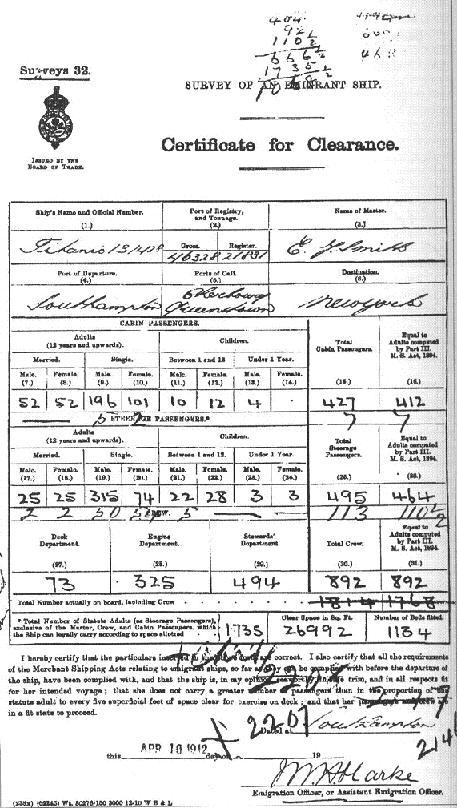 404
92½
110½
Surveys 32.
SURVEY OF AN EMIGRANT SHIP.
ISSUED BY THE
BOARD OF TRADE.
Certificate for Clearance.
Ship's Name and Official Number. Port of Registry, and Tonnage. Name of Master.
(1.) (2.) (3.)
Gross. Register.
Titanic 131428 46328 21831 E. J. Smith
Port of Departure. Ports of Call. Destination.
(4.) (5.) (6.)
Southampton Cherbourg Queenstown New York
CABIN PASSENGERS.
Adults (12 years and upwards). Children. Total Cabin Passengers. Equal to Adults computed by Part III. M. S. Act, 1894.
Married. Single. Between 1 and 12 Under 1 Year.
Male. Female. Male. Female. Male. Female. Male. Female.
(7.) (8.) (9.) (10.) (11.) (12.) (13.) (14.) (15.) (16.)
52 52 196 101 10 12 4 · 427 412
5 7 7
STEERAGE PASSENGERS.*
Adults (12 years and upwards). Children. Total Steerage Passengers. Equal to Adults computed by Part III. M. S. Act, 1894.
Married. Single. Between 1 and 12. Under 1 Year.
Male. Female. Male. Female. Male. Female. Male. Female.
(17.) (18.) (19.) (20.) (21.) (22.) (23.) (24.) (25.) (26.)
25 25 315 74 22 28 3 3 495 464
2 2 50 5 113 110½
CREW.
Deck Department. Engine Department. Stewards' Department. Total Crew. Equal to Adults computed by Part III. M. S. Act, 1894.
(27.) (28.) (29.) (30.) (31.)
73 325 494 892 892
Total Number actually on board, including Crew 1814 1768
* Total Number of Statute Adults (as Steerage Passengers), exclusive of the Master, Crew, and Cabin Passengers, which the Ship can legally carry according to space allotted 1735
Clear Space in Sq. Ft. 26992
Number of Beds fitted. 1134
I hereby certify that the particulars inserted in the above form are correct. I also certify that all the requirements
of the Merchant Shipping Acts relating to emigrant ships, so far as they can be complied with before the departure of
the ship, have been complied with, and that the ship is, in my opinion, seaworthy, in safe trim, and in all respects fit
for her intended voyage; that she does not carry a greater number of passengers than in the proportion of one
statute adult to every five superficial feet of space clear for exercise on deck; and that her passengers and crew are
in a fit state to proceed.
2207
Dated at Southampton
this APR 10 1912 day of 19
Emigration Officer, or Assistant Emigration Officer.